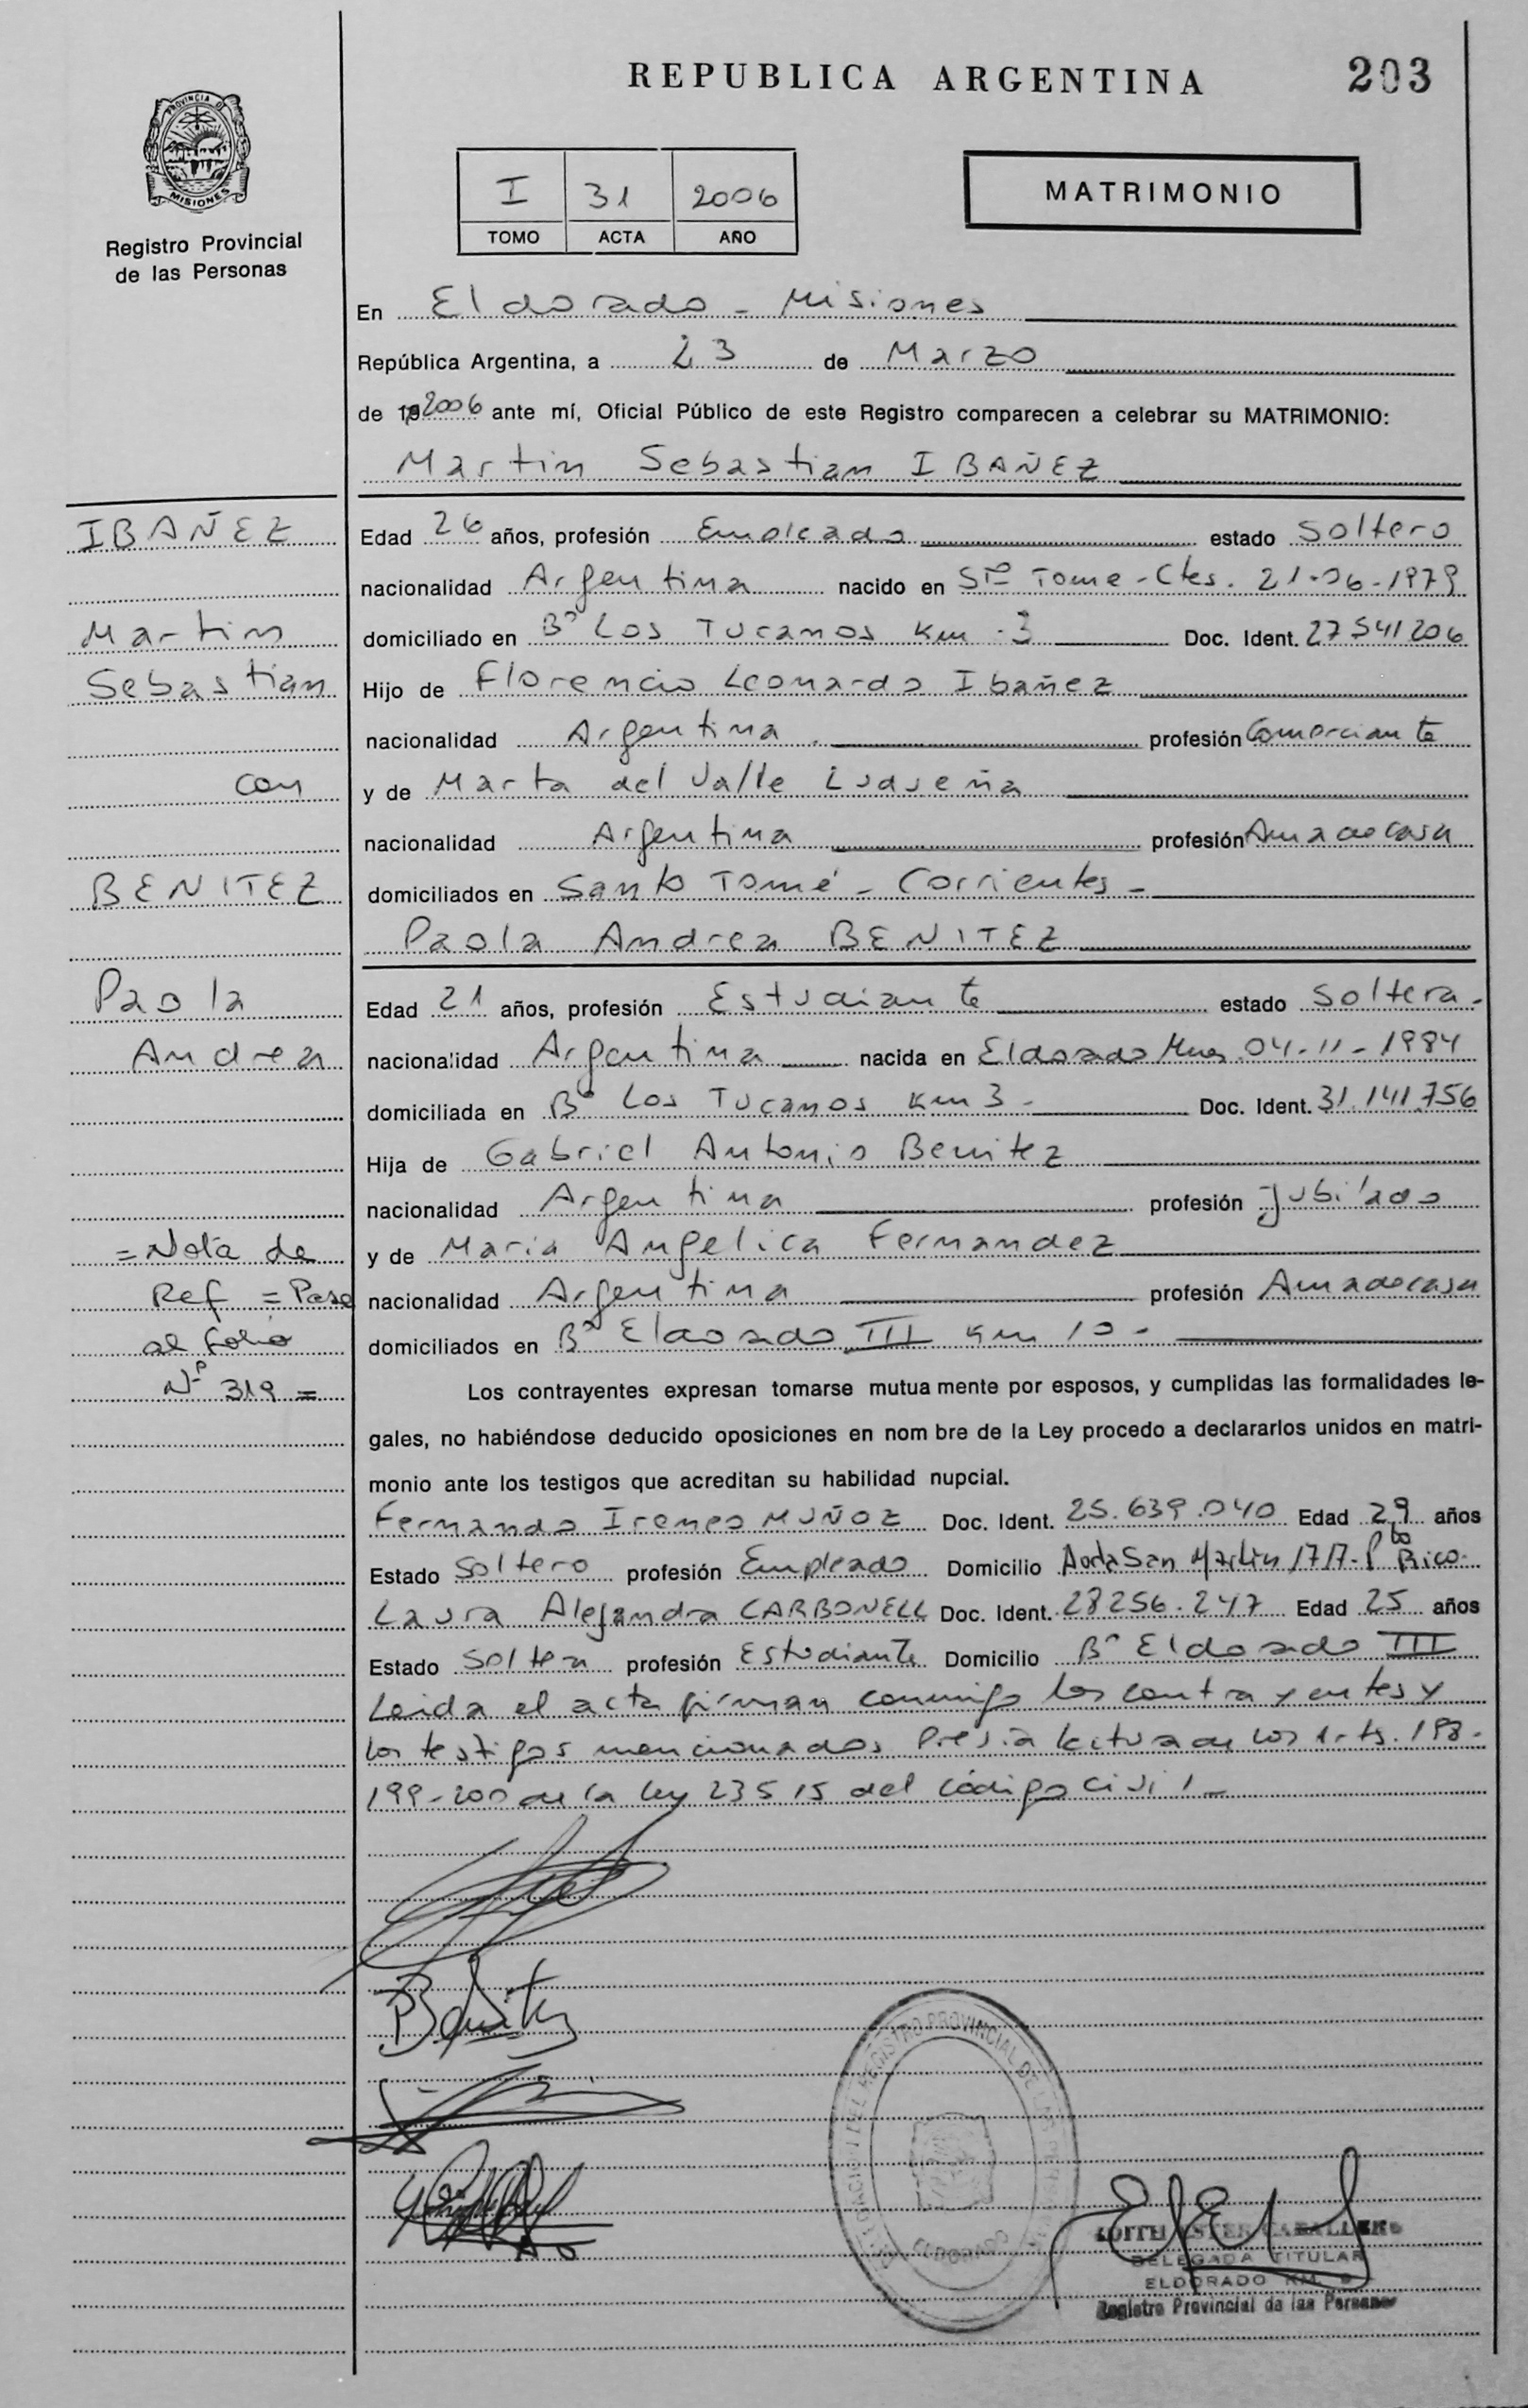 REPUBLICA ARGENTINA
203
PROVINCIA D
MISIONES
Registro Provincial
de las Personas
I 31 2006
TOMO ACTA AÑO
MATRIMONIO
En Eldorado - Misiones
República Argentina, a 23 de Marzo
de 19 2006 ante mí, Oficial Público de este Registro comparecen a celebrar su MATRIMONIO:
Martin Sebastian IBAÑEZ
IBAÑEZ
Martin
Sebastian
con
BENITEZ
Paola
Andrea
= Nota de
Ref = Pase
al folio
Nº 319 =
Edad 26 años, profesión Empleado estado Soltero
nacionalidad Argentina nacido en Sto Tome - Ctes. 21-06-1979
domiciliado en Bº Los Tucanos Km 3 Doc. Ident. 27541206
Hijo de Florencio Leonardo Ibañez
nacionalidad Argentina profesión Comerciante
y de Marta del Valle Ludueña
nacionalidad Argentina profesión Ama de casa
domiciliados en Santo Tomé - Corrientes -
Paola Andrea BENITEZ
Edad 21 años, profesión Estudiante estado Soltera -
nacionalidad Argentina nacida en Eldorado Mnes. 04-11-1984
domiciliada en Bº Los Tucanos Km 3 - Doc. Ident. 31.141.756
Hija de Gabriel Antonio Benitez
nacionalidad Argentina profesión Jubilado
y de Maria Angelica Fernandez
nacionalidad Argentina profesión Ama de casa
domiciliados en Bº Eldorado III Km 10 -
Los contrayentes expresan tomarse mutua mente por esposos, y cumplidas las formalidades le-
gales, no habiéndose deducido oposiciones en nom bre de la Ley procedo a declararlos unidos en matri-
monio ante los testigos que acreditan su habilidad nupcial.
Fernando Ireneo MUÑOZ Doc. Ident. 25.639.040 Edad 29 años
Estado Soltero profesión Empleado Domicilio Avda San Martin 1717 - Pto Rico -
Laura Alejandra CARBONELL Doc. Ident. 28256.247 Edad 25 años
Estado Soltera profesión Estudiante Domicilio Bº Eldorado III
Leida el acta firman conmigo los contrayentes y
los testigos mencionados Previa lectura de los arts. 198-
199-200 de la ley 23515 del Código Civil -
Benitez
REGISTRO PROVINCIAL DE LAS
ELDORADO
EDITH ESTER CABALLERO
DELEGADA TITULAR
ELDORADO KM. 9
Registro Provincial de las Personas